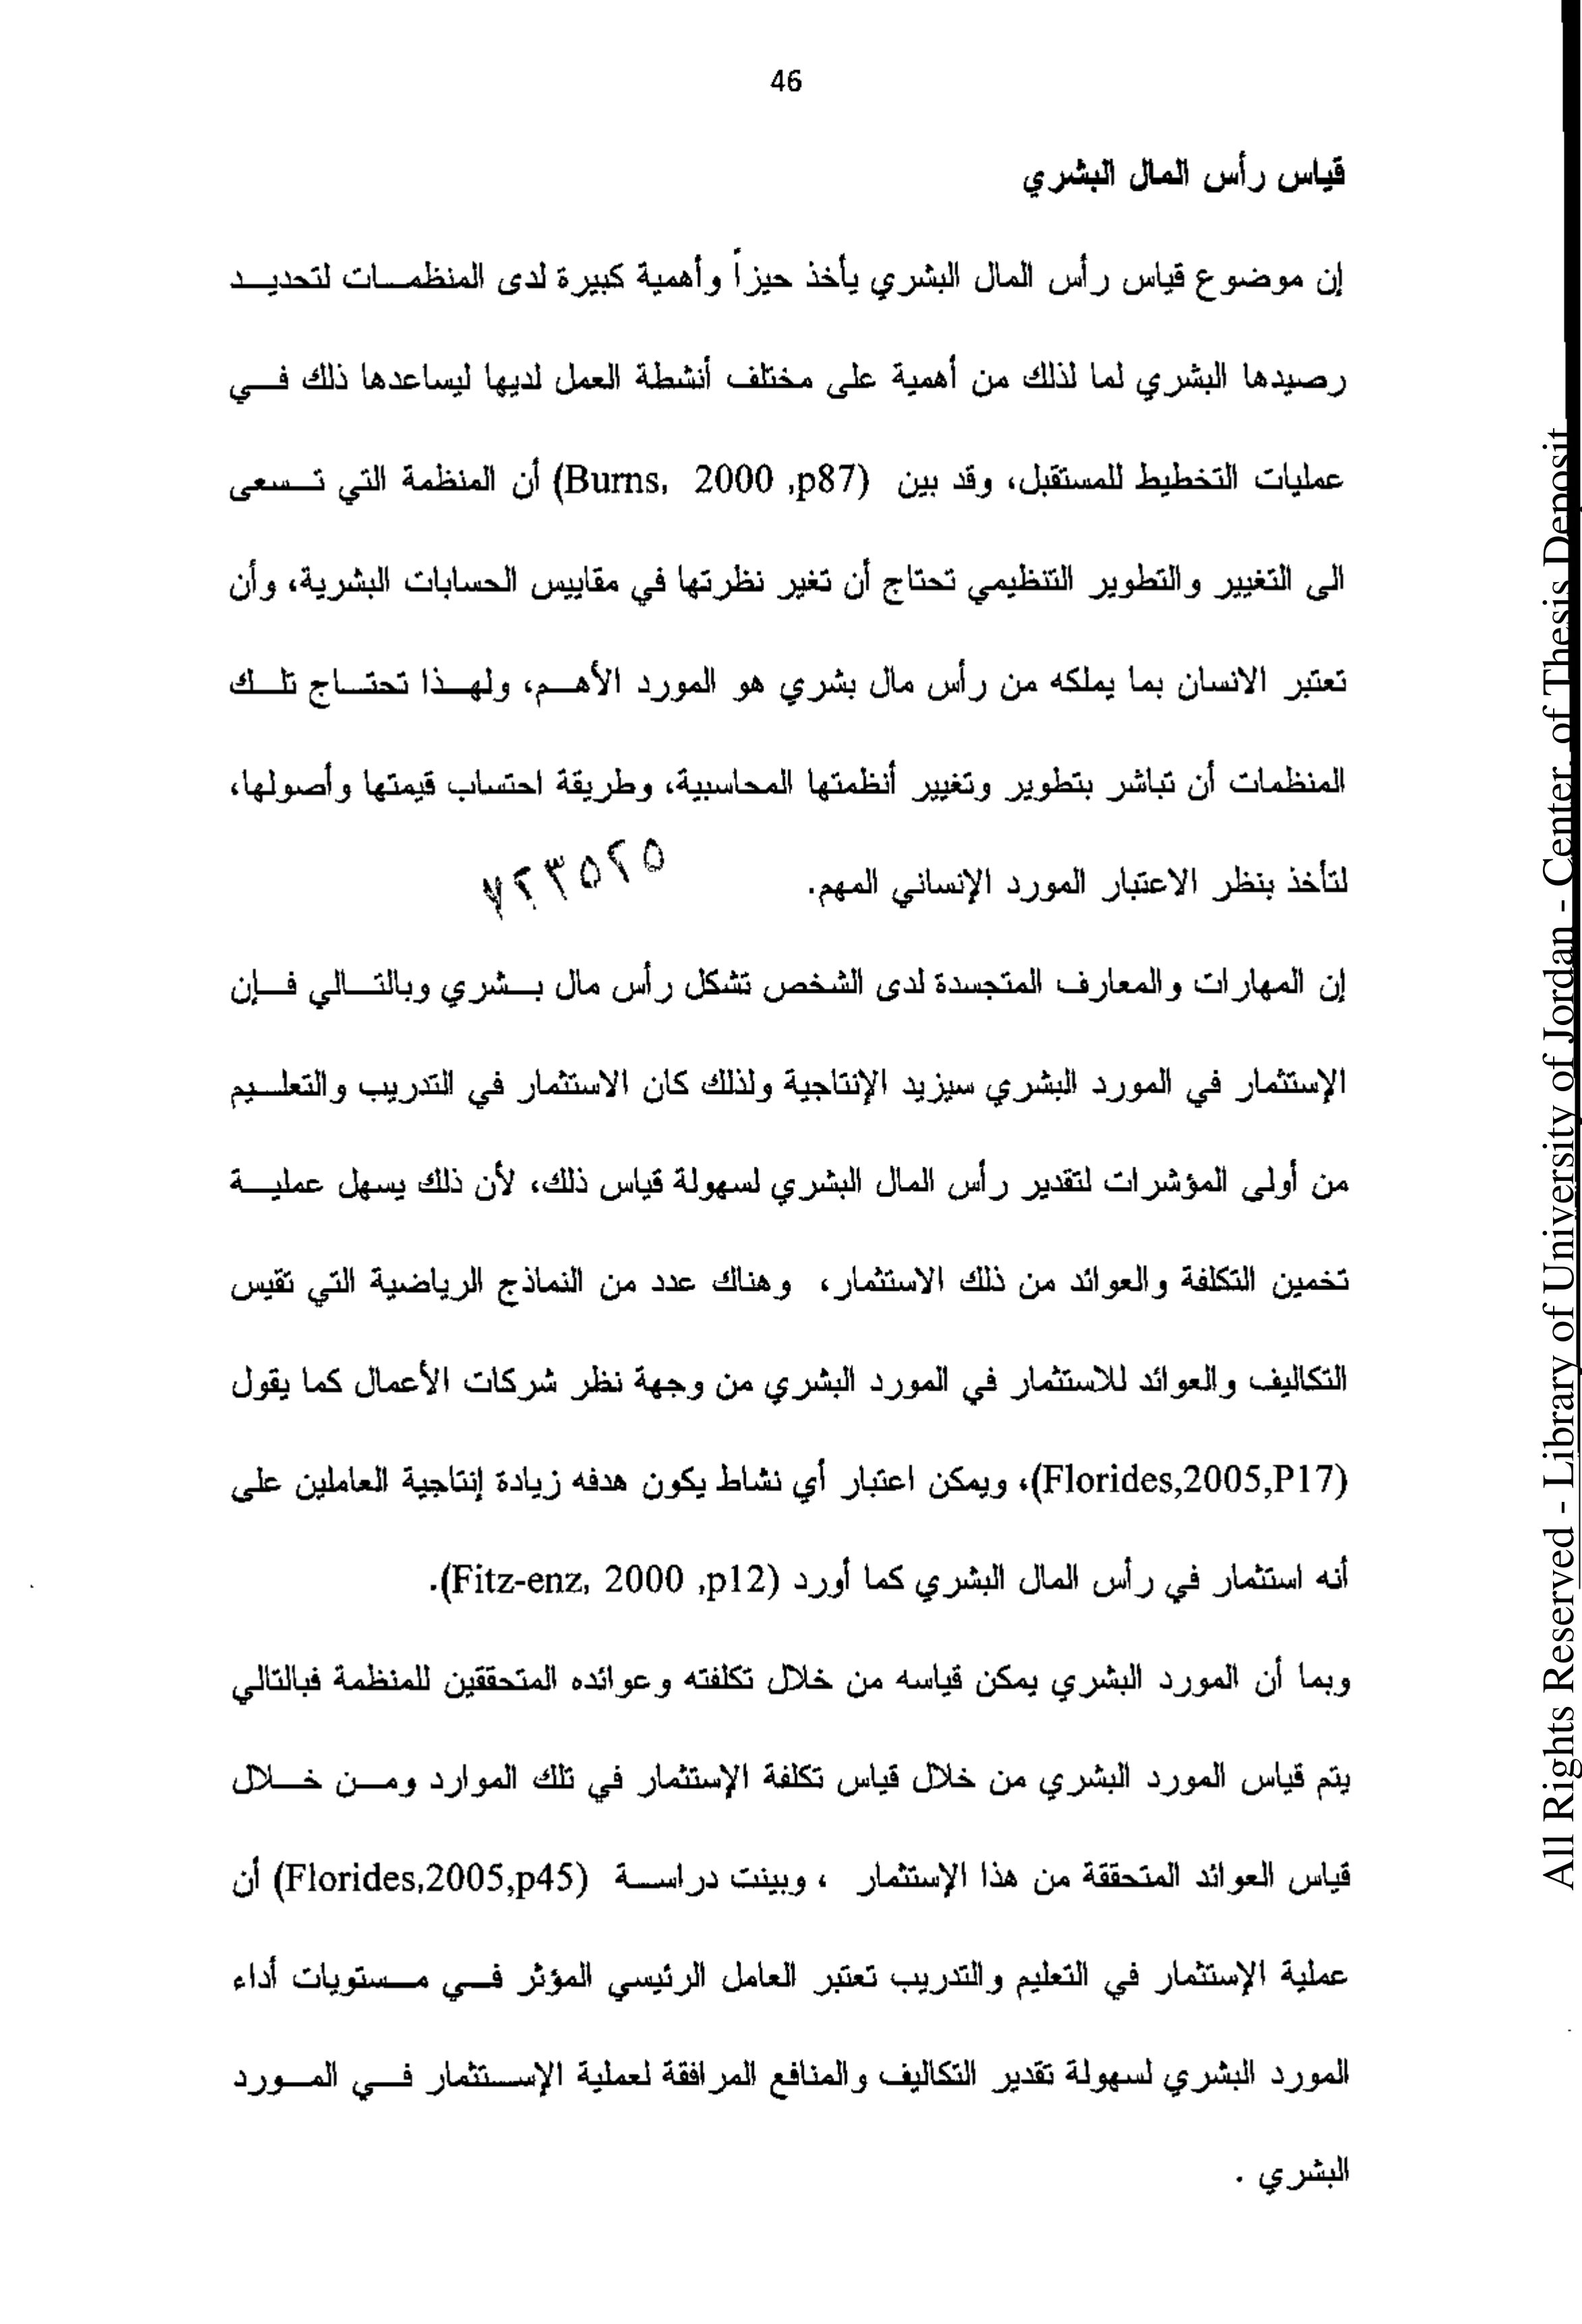 46
قياس رأس المال البشري
إن موضوع قياس رأس المال البشري يأخذ حيزاً وأهمية كبيرة لدى المنظمات لتحديد
رصيدها البشري لما لذلك من أهمية على مختلف أنشطة العمل لديها ليساعدها ذلك في
عمليات التخطيط للمستقبل، وقد بين (Burns, 2000 ,p87) أن المنظمة التي تسعى
الى التغيير والتطوير التنظيمي تحتاج أن تغير نظرتها في مقاييس الحسابات البشرية، وأن
تعتبر الانسان بما يملكه من رأس مال بشري هو المورد الأهم، ولهذا تحتاج تلك
المنظمات أن تباشر بتطوير وتغيير أنظمتها المحاسبية، وطريقة احتساب قيمتها وأصولها،
لتأخذ بنظر الاعتبار المورد الإنساني المهم.
٧٢٣٥٢٥
إن المهارات والمعارف المتجسدة لدى الشخص تشكل رأس مال بشري وبالتالي فإن
الإستثمار في المورد البشري سيزيد الإنتاجية ولذلك كان الاستثمار في التدريب والتعليم
من أولى المؤشرات لتقدير رأس المال البشري لسهولة قياس ذلك، لأن ذلك يسهل عملية
تخمين التكلفة والعوائد من ذلك الاستثمار، وهناك عدد من النماذج الرياضية التي تقيس
التكاليف والعوائد للاستثمار في المورد البشري من وجهة نظر شركات الأعمال كما يقول
(Florides,2005,P17)، ويمكن اعتبار أي نشاط يكون هدفه زيادة إنتاجية العاملين على
أنه استثمار في رأس المال البشري كما أورد (Fitz-enz, 2000 ,p12).
وبما أن المورد البشري يمكن قياسه من خلال تكلفته وعوائده المتحققين للمنظمة فبالتالي
يتم قياس المورد البشري من خلال قياس تكلفة الإستثمار في تلك الموارد ومن خلال
قياس العوائد المتحققة من هذا الإستثمار ، وبينت دراسة (Florides,2005,p45) أن
عملية الإستثمار في التعليم والتدريب تعتبر العامل الرئيسي المؤثر في مستويات أداء
المورد البشري لسهولة تقدير التكاليف والمنافع المرافقة لعملية الإستثمار في المورد
البشري .
All Rights Reserved - Library of University of Jordan - Center of Thesis Deposit